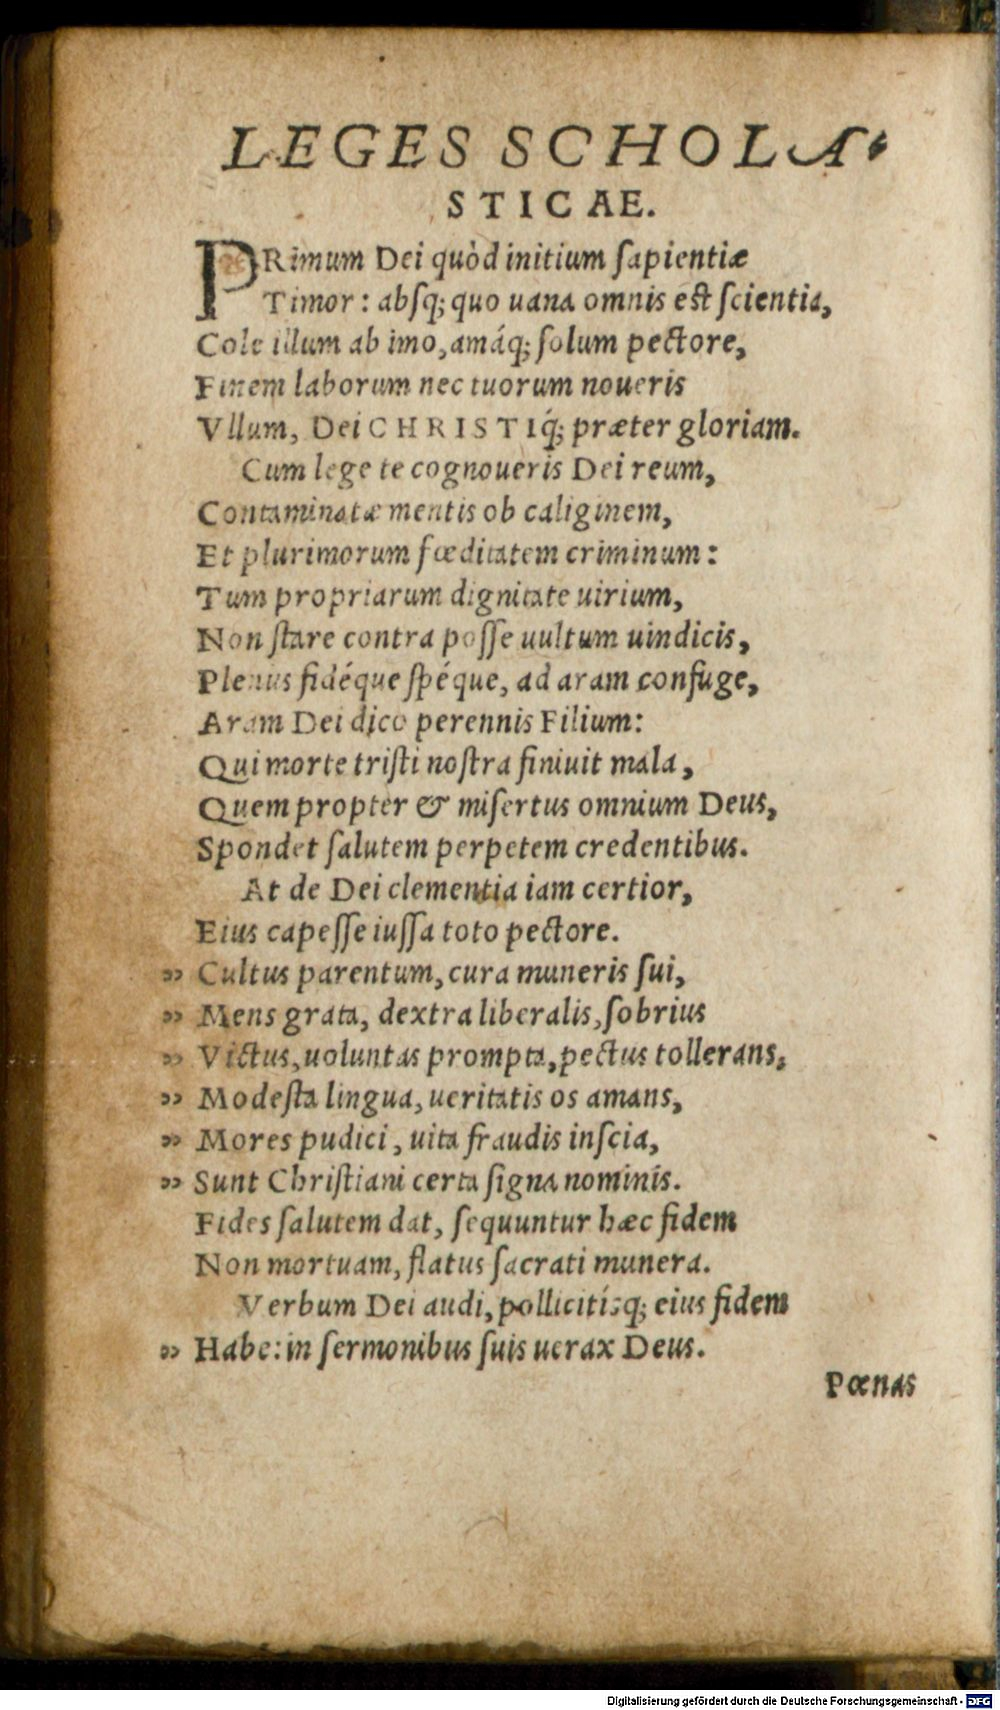 LEGES SCHOLA-
STICAE.
PRimum Dei quòd initium ſapientiæ
Timor: abſq; quo uana omnis eſt ſcientia,
Cole illum ab imo, amáq; ſolum pectore,
Finem laborum nec tuorum noueris
Vllum, Dei CHRISTIq́; præter gloriam.
Cum lege te cognoueris Dei reum,
Contaminatæ mentis ob caliginem,
Et plurimorum fœditatem criminum:
Tum propriarum dignitate uirium,
Non ſtare contra poſſe uultum uindicis,
Plenus fidéque ſpéque, ad aram confuge,
Aram Dei dico perennis Filium:
Qui morte triſti noſtra finiuit mala,
Quem propter & miſertus omnium Deus,
Spondet ſalutem perpetem credentibus.
At de Dei clementia iam certior,
Eius capeſſe iuſſa toto pectore.
„ Cultus parentum, cura muneris ſui,
„ Mens grata, dextra liberalis, ſobrius
„ Victus, uoluntas prompta, pectus tollerans,
„ Modeſta lingua, ueritatis os amans,
„ Mores pudici, uita fraudis inſcia,
„ Sunt Chriſtiani certa ſigna nominis.
Fides ſalutem dat, ſequuntur hæc fidem
Non mortuam, flatus ſacrati munera.
Verbum Dei audi, pollicitíſq; eius fidem
„ Habe: in ſermonibus ſuis uerax Deus.
Pœnas
Digitalisierung gefördert durch die Deutsche Forschungsgemeinschaft - DFG